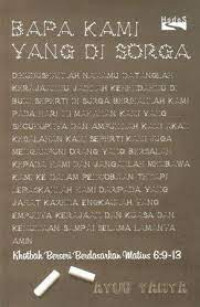 BAPA KAMI
YANG DI SORGA
DIKUDUSKANLAH NAMAMU DATANGLAH
KERAJAANMU JADILAH KEHENDAKMU DI
BUMI SEPERTI DI SORGA BERIKANLAH KAMI
PADA HARI INI MAKANAN KAMI YANG
SECUKUPNYA DAN AMPUNILAH KAMI AKAN
KESALAHAN KAMI SEPERTI KAMI JUGA
MENGAMPUNI ORANG YANG BERSALAH
KEPADA KAMI DAN JANGANLAH MEMBAWA
KAMI KE DALAM PENCOBAAN TETAPI
LEPASKANLAH KAMI DARIPADA YANG
JAHAT KARENA ENGKAULAH YANG
EMPUNYA KERAJAAN DAN KUASA DAN
KEMULIAAN SAMPAI SELAMA LAMANYA
AMIN
Khotbah Berseri Berdasarkan Matius 6:9-13
AYUB YAHYA